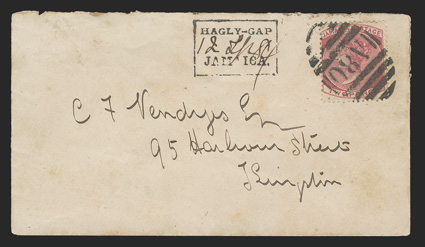 HAGLY-GAP
JAMAICA
A80
C F Vendryes Esq
95 Harbour Street
Kingston